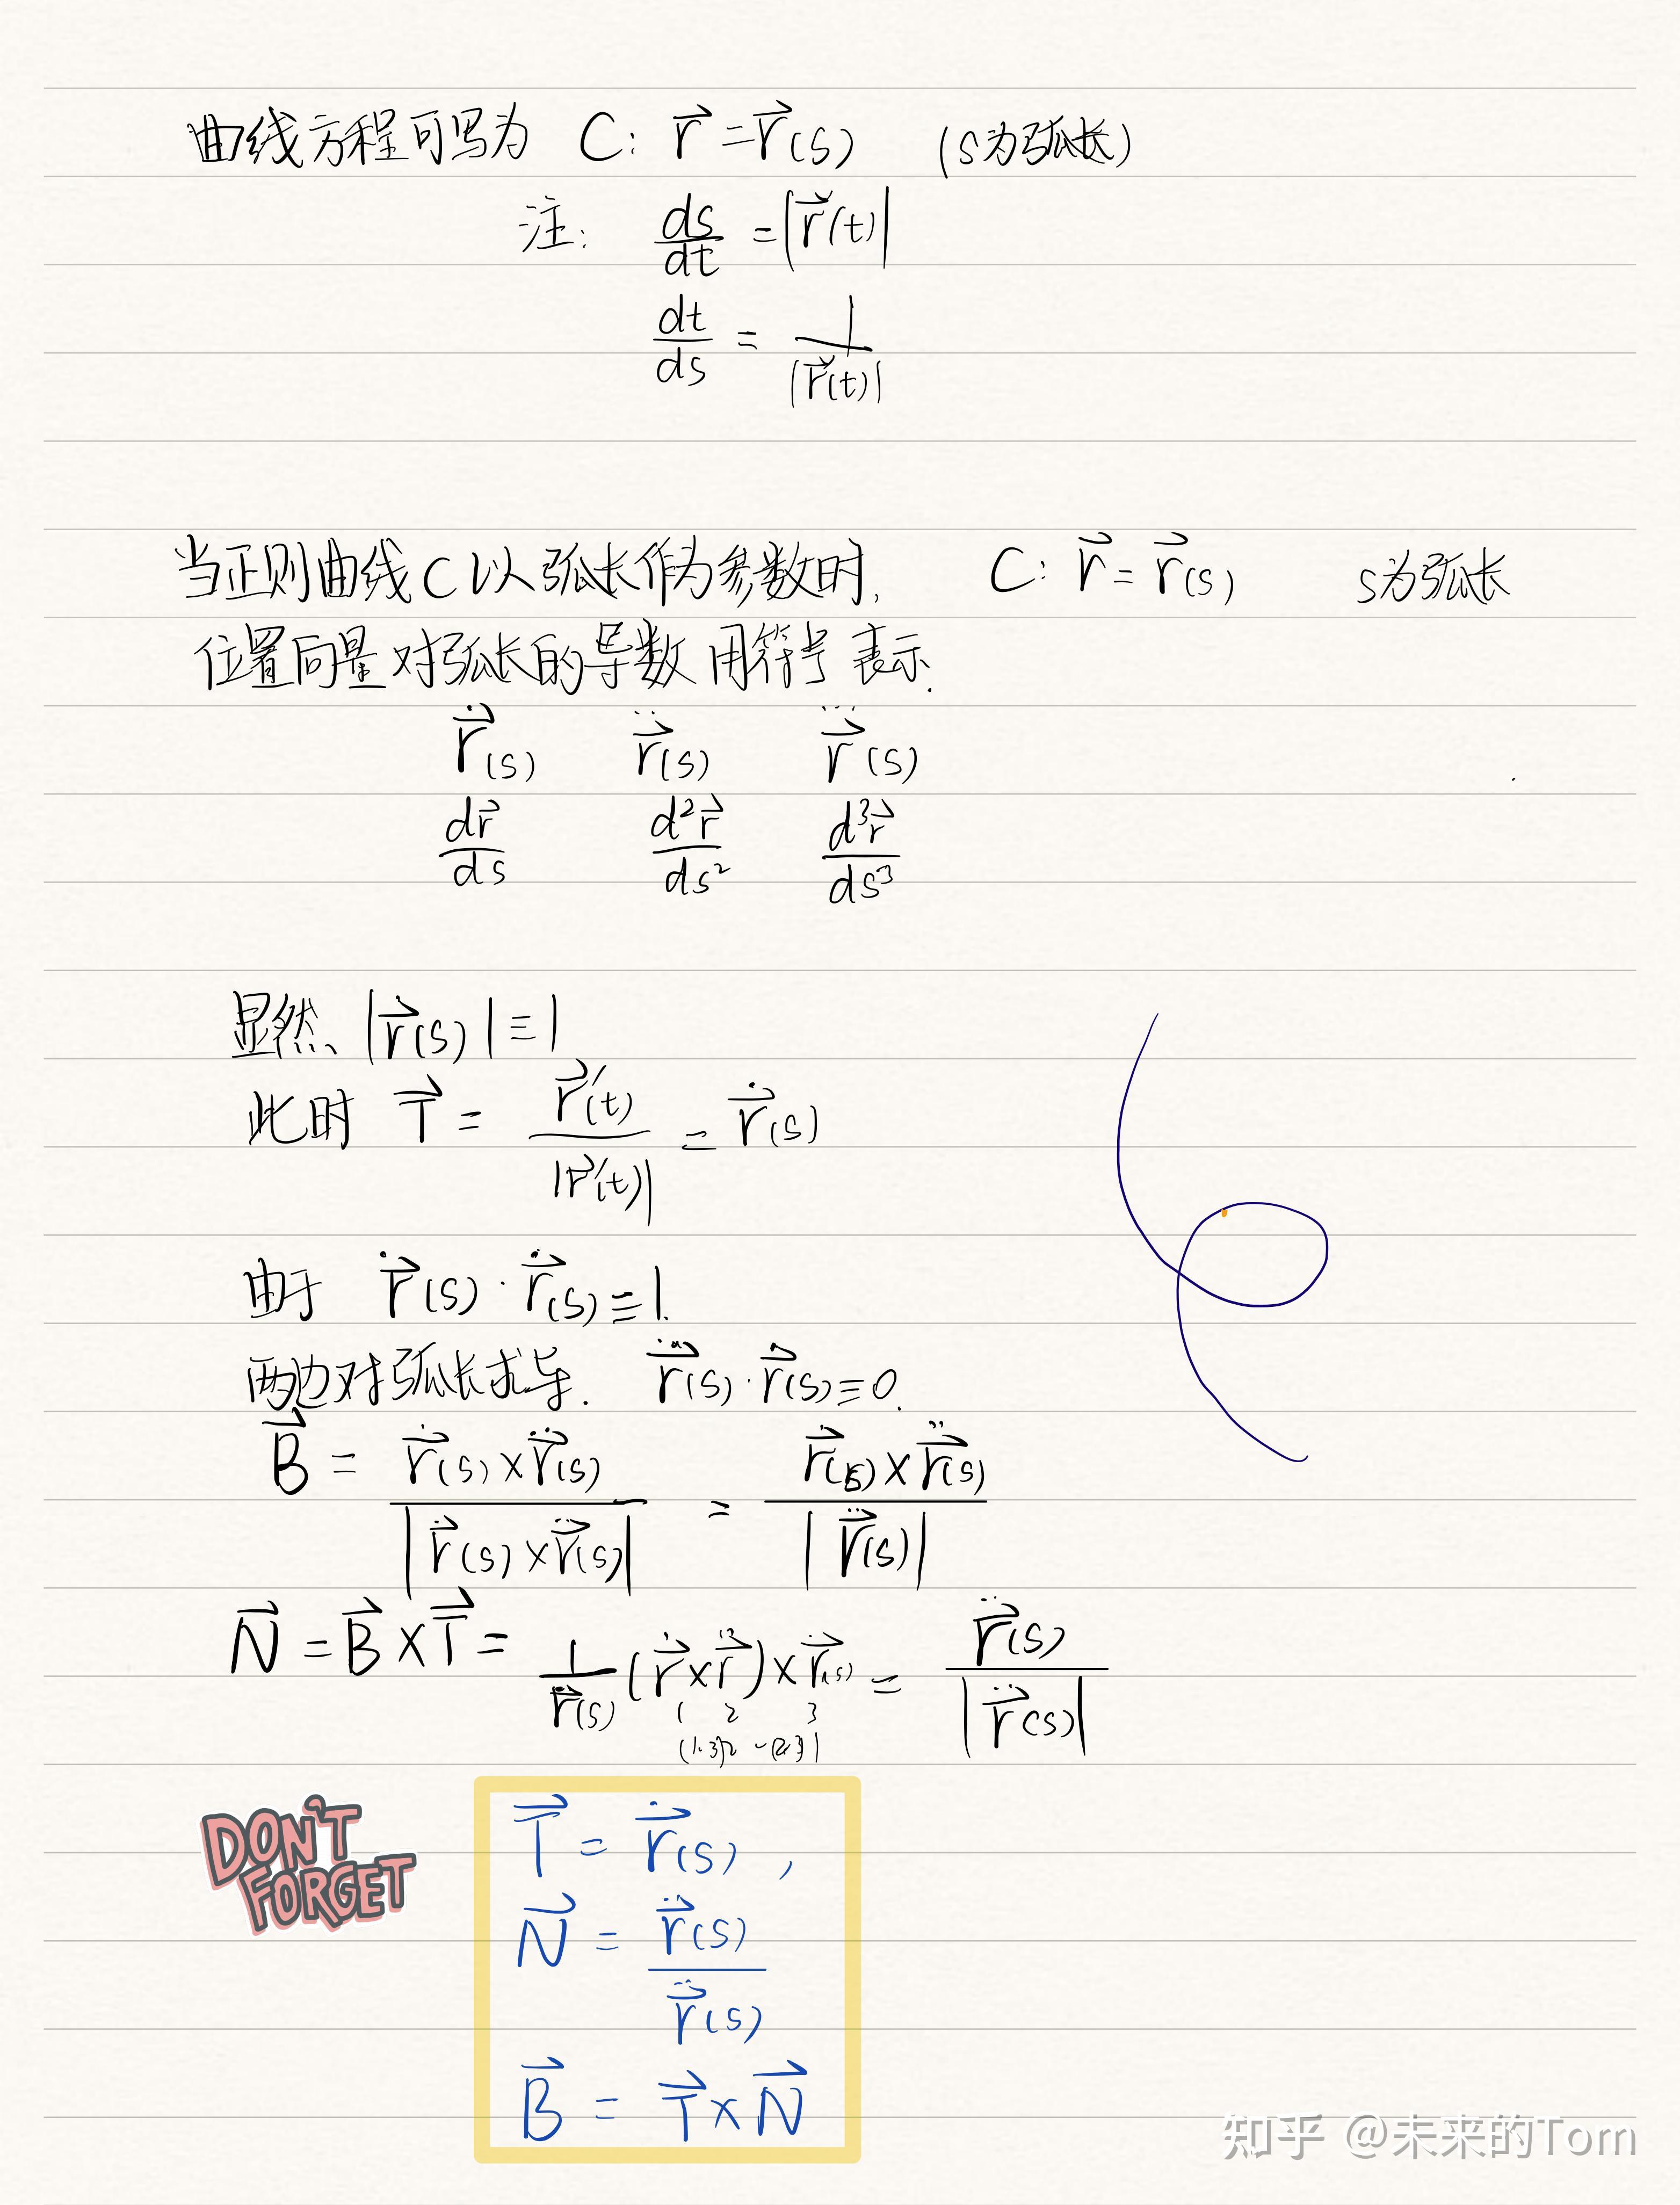 曲线方程可写为 C: r⃗ = r⃗(s) (s为弧长)
注: ds/dt = |r⃗'(t)|
dt/ds = 1/|r⃗'(t)|
当正则曲线C以弧长作为参数时, C: r⃗ = r⃗(s) s为弧长
位置向量对弧长的导数用符号表示.
ṙ⃗(s) r̈⃗(s) r⃛⃗(s)
dr⃗/ds d²r⃗/ds² d³r⃗/ds³
显然、|ṙ⃗(s)| ≡ 1
此时 T⃗ = r⃗'(t)/|r⃗'(t)| = ṙ⃗(s)
由于 ṙ⃗(s)·ṙ⃗(s) ≡ 1.
两边对弧长求导. r̈⃗(s)·ṙ⃗(s) ≡ 0.
B⃗ = ṙ⃗(s)×r̈⃗(s)/|ṙ⃗(s)×r̈⃗(s)| = ṙ⃗(s)×r̈⃗(s)/|r̈⃗(s)|
N⃗ = B⃗×T⃗ = 1/r̈⃗(s) (ṙ⃗×r̈⃗)×ṙ⃗(s) = r̈⃗(s)/|r̈⃗(s)|
1 2 3
DON'T
FORGET
T⃗ = ṙ⃗(s),
N⃗ = r̈⃗(s)/r̈⃗(s)
B⃗ = T⃗×N⃗
知乎 @未来的Tom